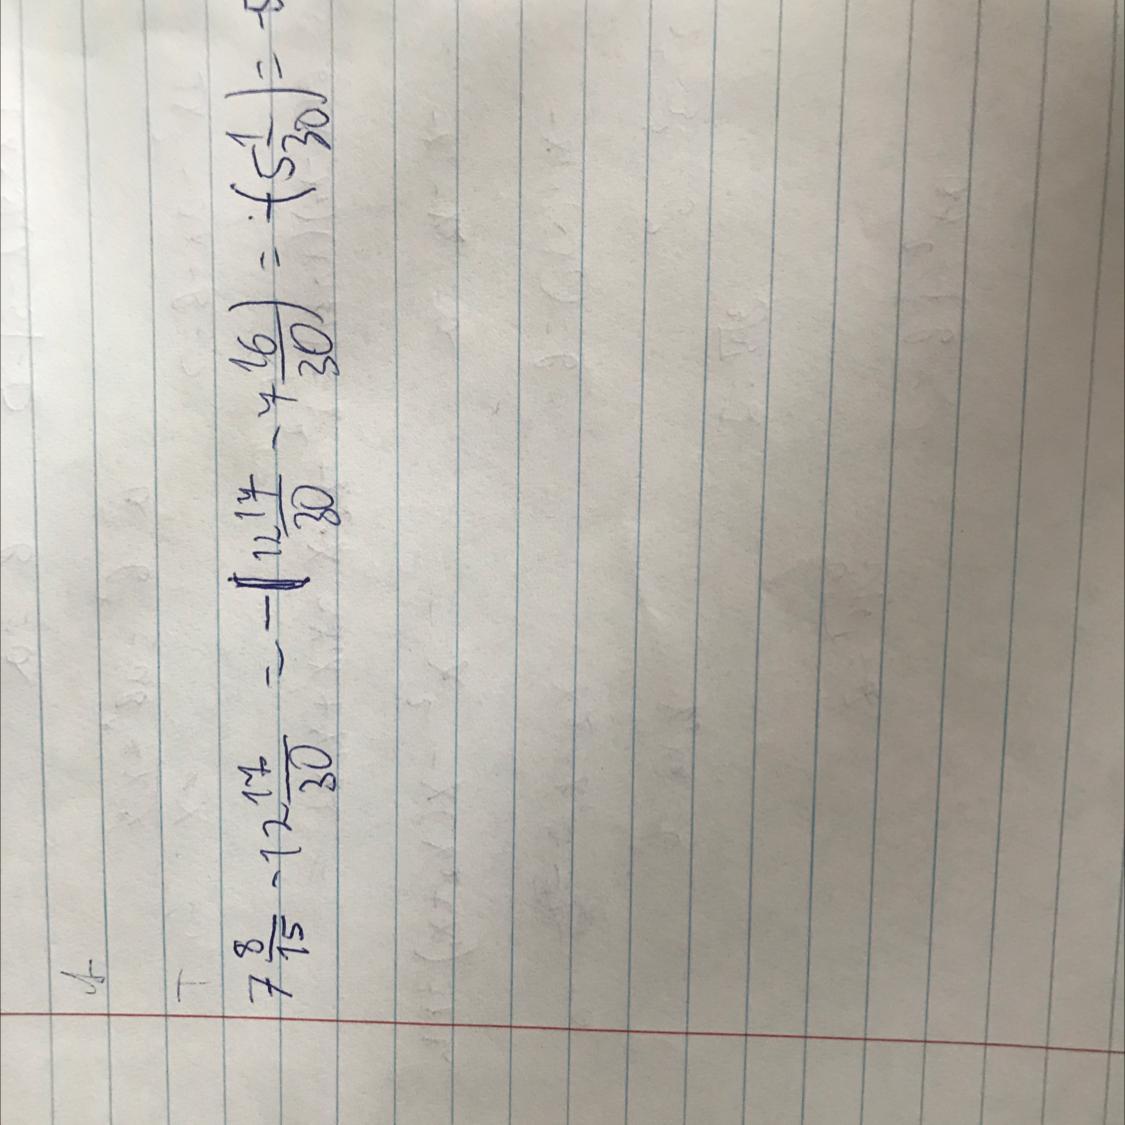 7 8/15 - 12 17/30 = -(12 17/30 - 7 16/30) = -(5 1/30) = -5